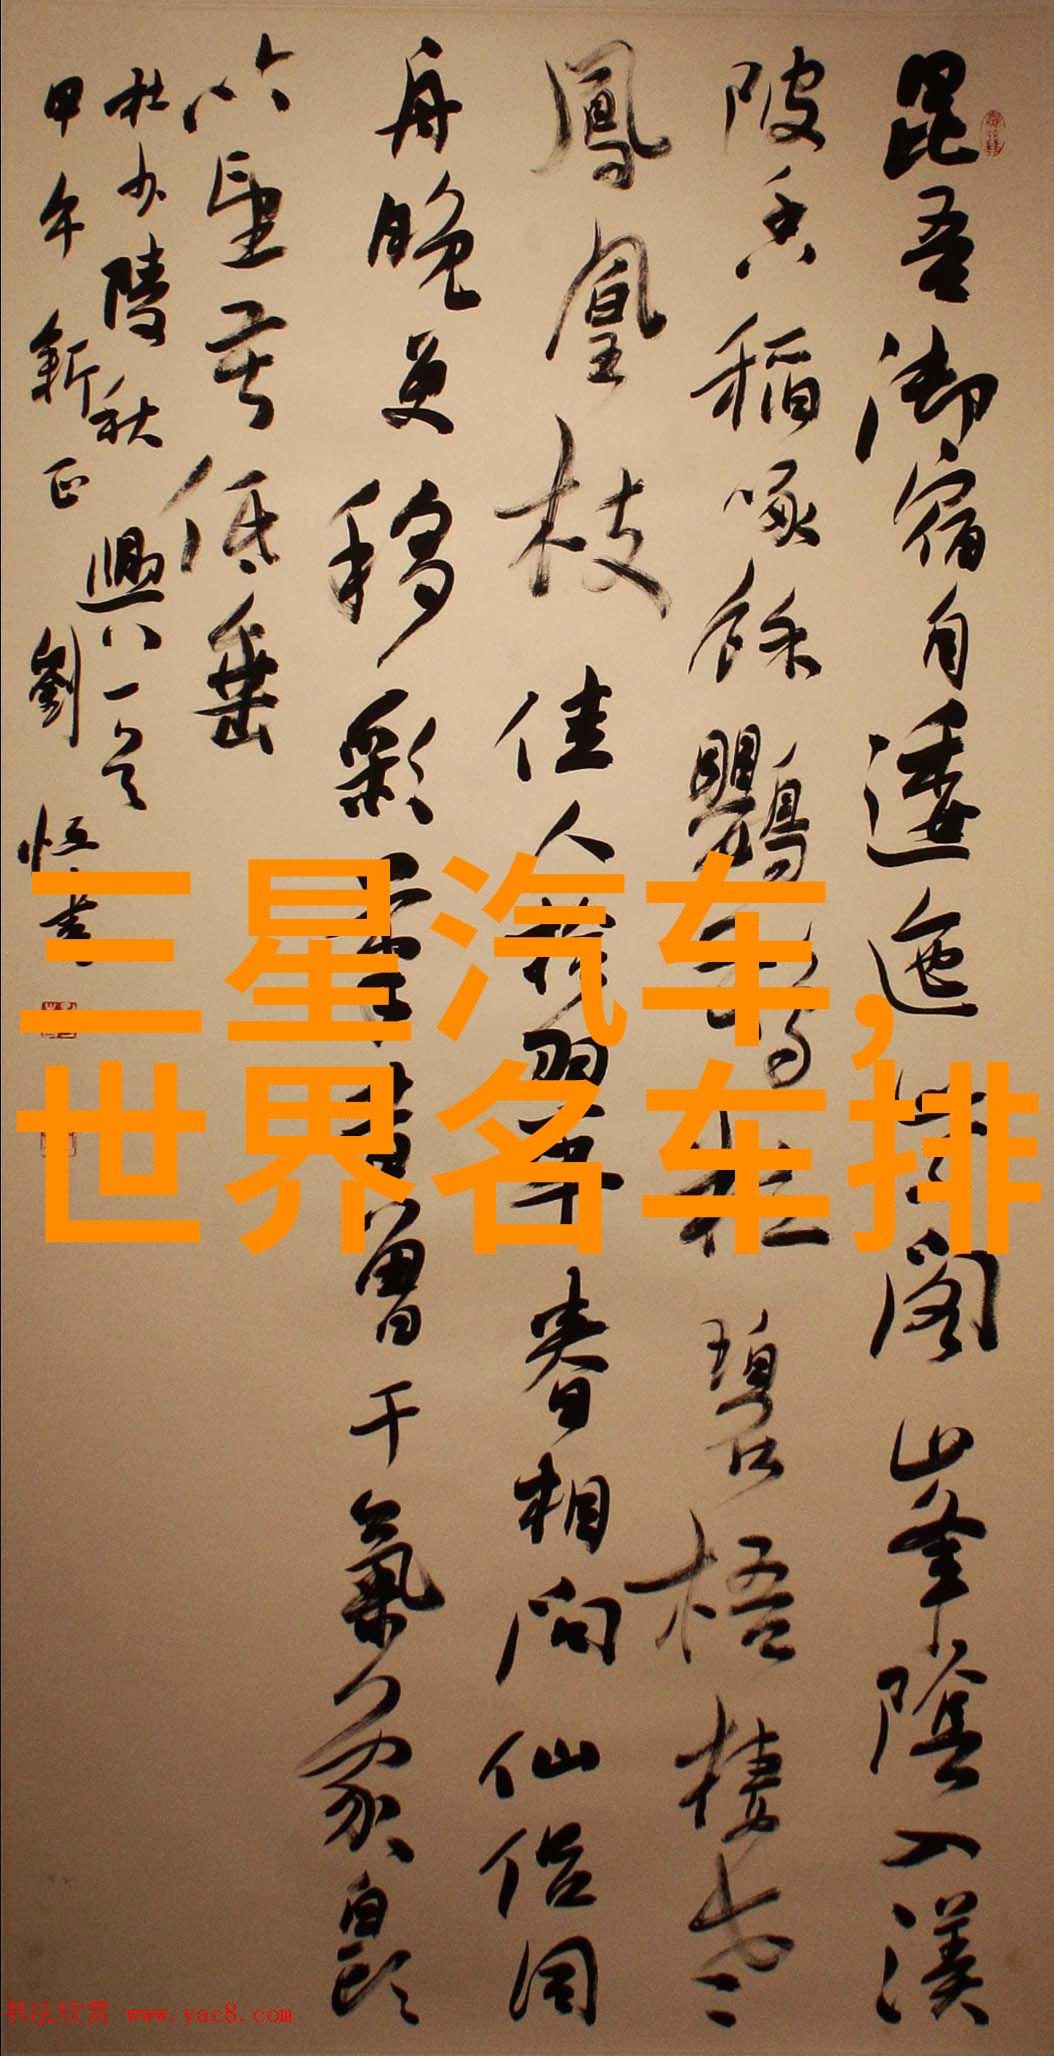 昆吾御宿自逶迤紫閣峯陰入渼
陂香稻啄餘鸚鵡粒碧梧棲老
鳳凰枝佳人拾翠春相問仙侣同
舟晚更移彩筆昔曾干氣象白頭
吟望苦低垂
杜少陵秋興八一首
甲午新正劉恒書
三星汽车,
世界名车排
书法欣赏 www.yac8.com